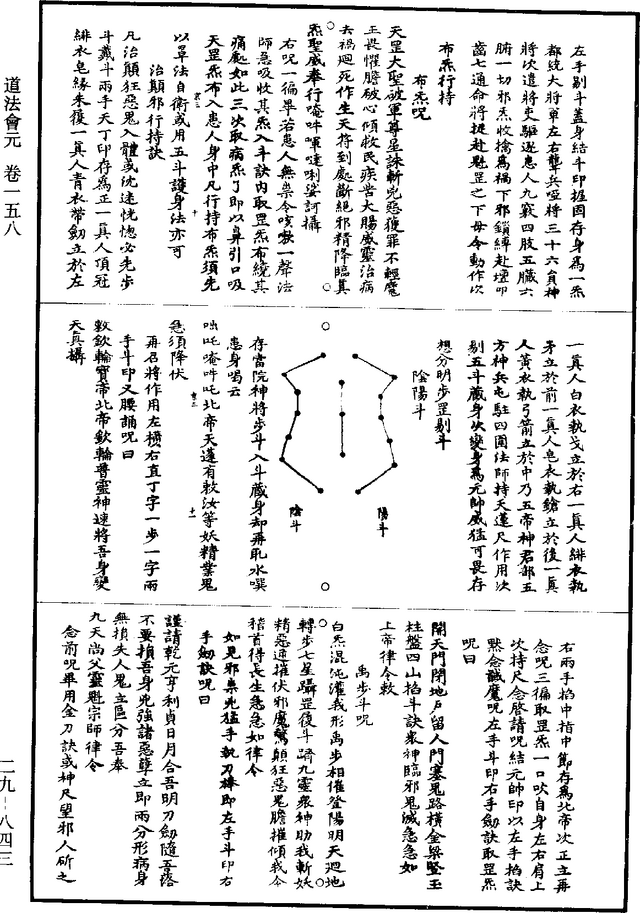 道法會元　卷一五八
二九—八四三
左手剔斗蓋身結斗印握固存身爲一炁
都統大將軍左右聾兵啞將三十六員神
將次遣將吏驅逐患人九竅四肢五臟六
腑一切邪炁收擒爲禍下邪鎖縛赴壇叩
齒七通命將挺赴魁罡之下毋令動作次
布炁行持
布炁咒
天罡大聖破軍尊星誅斬兇惡彼罪不輕魔
王畏懼膽破心傾救民疾苦大賜威靈治病
去禍迴死作生天將到處斷絕邪精降臨真
炁聖威奉行唵吽
右咒一徧畢治患人無祟令咳嗽一聲法
師急吸收其炁入斗訣內取罡炁布繞其
痛處如此三次取病炁了即以鼻引口吸
天罡炁布入患人身中凡行持布炁須先
以單法自衛或用五斗護身法亦可
治顛邪行持訣
凡治顛狂惡鬼入體或沈迷恍惚必先步
斗戴斗兩手天丁印存爲正一真人頂冠
緋衣皂緣朱履一真人青衣帶劒立於左
一真人白衣執戈立於右一真人緋衣執
矛立於前一真人皂衣執鎗立於後一真
人黃衣執弓箭立於中乃五帝神君部五
方神兵屯駐四圍法師持天蓬尺作用次
剔五斗藏身次變身爲元帥威猛可畏存
想分明步罡剔斗
陰陽斗
陽斗
陰斗
存當院神將步斗入斗藏身却再𠮟水噀
患身喝云
咄吒唵吽吒北帝天蓬有敕汝等妖精業鬼
急須降伏
再召將作用左橫右直丁字一步一字兩
手斗印叉腰誦咒曰
敕欽輪寶帝北帝欽輪普靈神速將吾身變
天真攝
右兩手掐中指中節存爲北帝次正立再
念咒三徧取罡炁一口吹自身左右肩上
次持尺念啓請咒結元帥印以左手掐訣
默念誠魔咒左手斗印右手劒訣取罡炁
咒曰
開天門閉地戶留人門塞鬼路橫金梁竪玉
柱盤四山掐斗訣衆神臨邪鬼滅急急如
上帝律令敕
禹步斗咒
白炁混沌灌我形禹步相催登陽明天迴地
轉步七星躡罡履斗躋九靈衆神助我斬妖
精惡逆摧伏邪魔驚顛狂惡鬼膽摧傾我今
稽首得長生急急如律令
如見邪祟兇猛手執刀棒即左手斗印右
手劒訣咒曰
謹請乾元亨利貞日月合吾明刀劒隨吾落
不要損吾身兇強諸惡孽立即兩分形病身
無損失人鬼立區分吾奉
九天尚父靈魁宗師律令
念前咒畢用金刀訣或神尺望邪人斫之